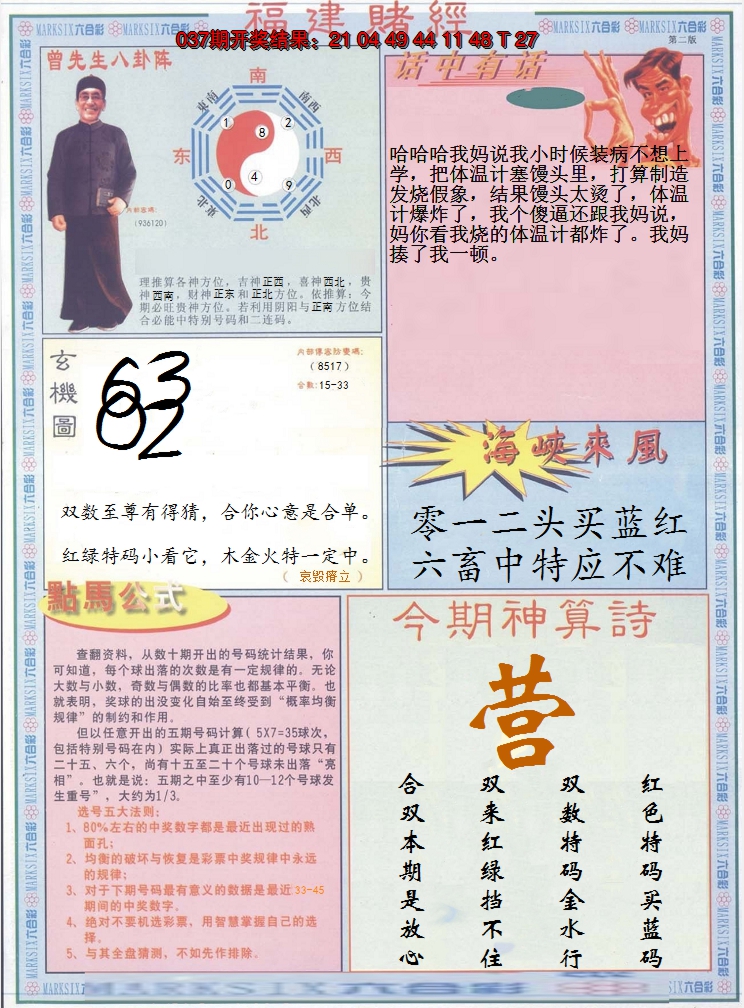 福建賭經
MARKSIX六合彩 MARKSIX六合彩 MARKSIX六合彩 MARKSIX六合彩
037期开奖结果：21 04 49 44 11 48 T 27
第二版
曾先生八卦阵
南
东南
南西
1
8
2
东
西
0
4
9
东北
北西
北
内部密碼:
(936120)
理推算各神方位，吉神正西，喜神西北，贵
神西南，财神正东和正北方位。依推算：今
期必旺贵神方位。若利用阴阳与正南方位结
合必能中特别号码和二连码。
话中有话
哈哈哈我妈说我小时候装病不想上
学，把体温计塞馒头里，打算制造
发烧假象，结果馒头太烫了，体温
计爆炸了，我个傻逼还跟我妈说，
妈你看我烧的体温计都炸了。我妈
揍了我一顿。
玄機圖
63
02
内部傳密防密碼:
(8517)
合数:15-33
双数至尊有得猜，合你心意是合单。
红绿特码小看它，木金火特一定中。
（ 哀毁瘠立 ）
海峽來風
零一二头买蓝红
六畜中特应不难
點馬公式
查翻资料，从数十期开出的号码统计结果，你
可知道，每个球出落的次数是有一定规律的。无论
大数与小数，奇数与偶数的比率也都基本平衡。也
就表明，奖球的出没变化自始至终受到“概率均衡
规律”的制约和作用。
但以任意开出的五期号码计算( 5X7=35球次，
包括特别号码在内) 实际上真正出落过的号球只有
二十五、六个，尚有十五至二十个号球未出落“亮
相”。也就是说：五期之中至少有10—12个号球发
生重号”，大约为1/3。
选号五大法则:
1、80%左右的中奖数字都是最近出现过的熟
面孔；
2、均衡的破坏与恢复是彩票中奖规律中永远
的规律；
3、对于下期号码最有意义的数据是最近33-45
期间的中奖数字。
4、绝对不要机选彩票，用智慧掌握自己的选
择。
5、与其全盘猜测，不如先作排除。
今期神算詩
营
红色特码买蓝码
双数特码金水行
双来红绿挡不住
合双本期是放心
MARKSIX六合彩